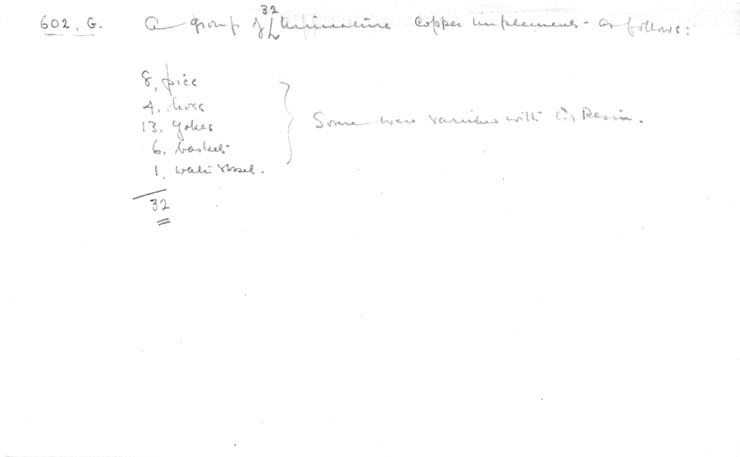 602, G. A group of 32 miniature copper implements - as follows:
8, pics
4. hoes
13. yokes
6. baskets
1. water vessel.
32
Some were varnished with Resin.